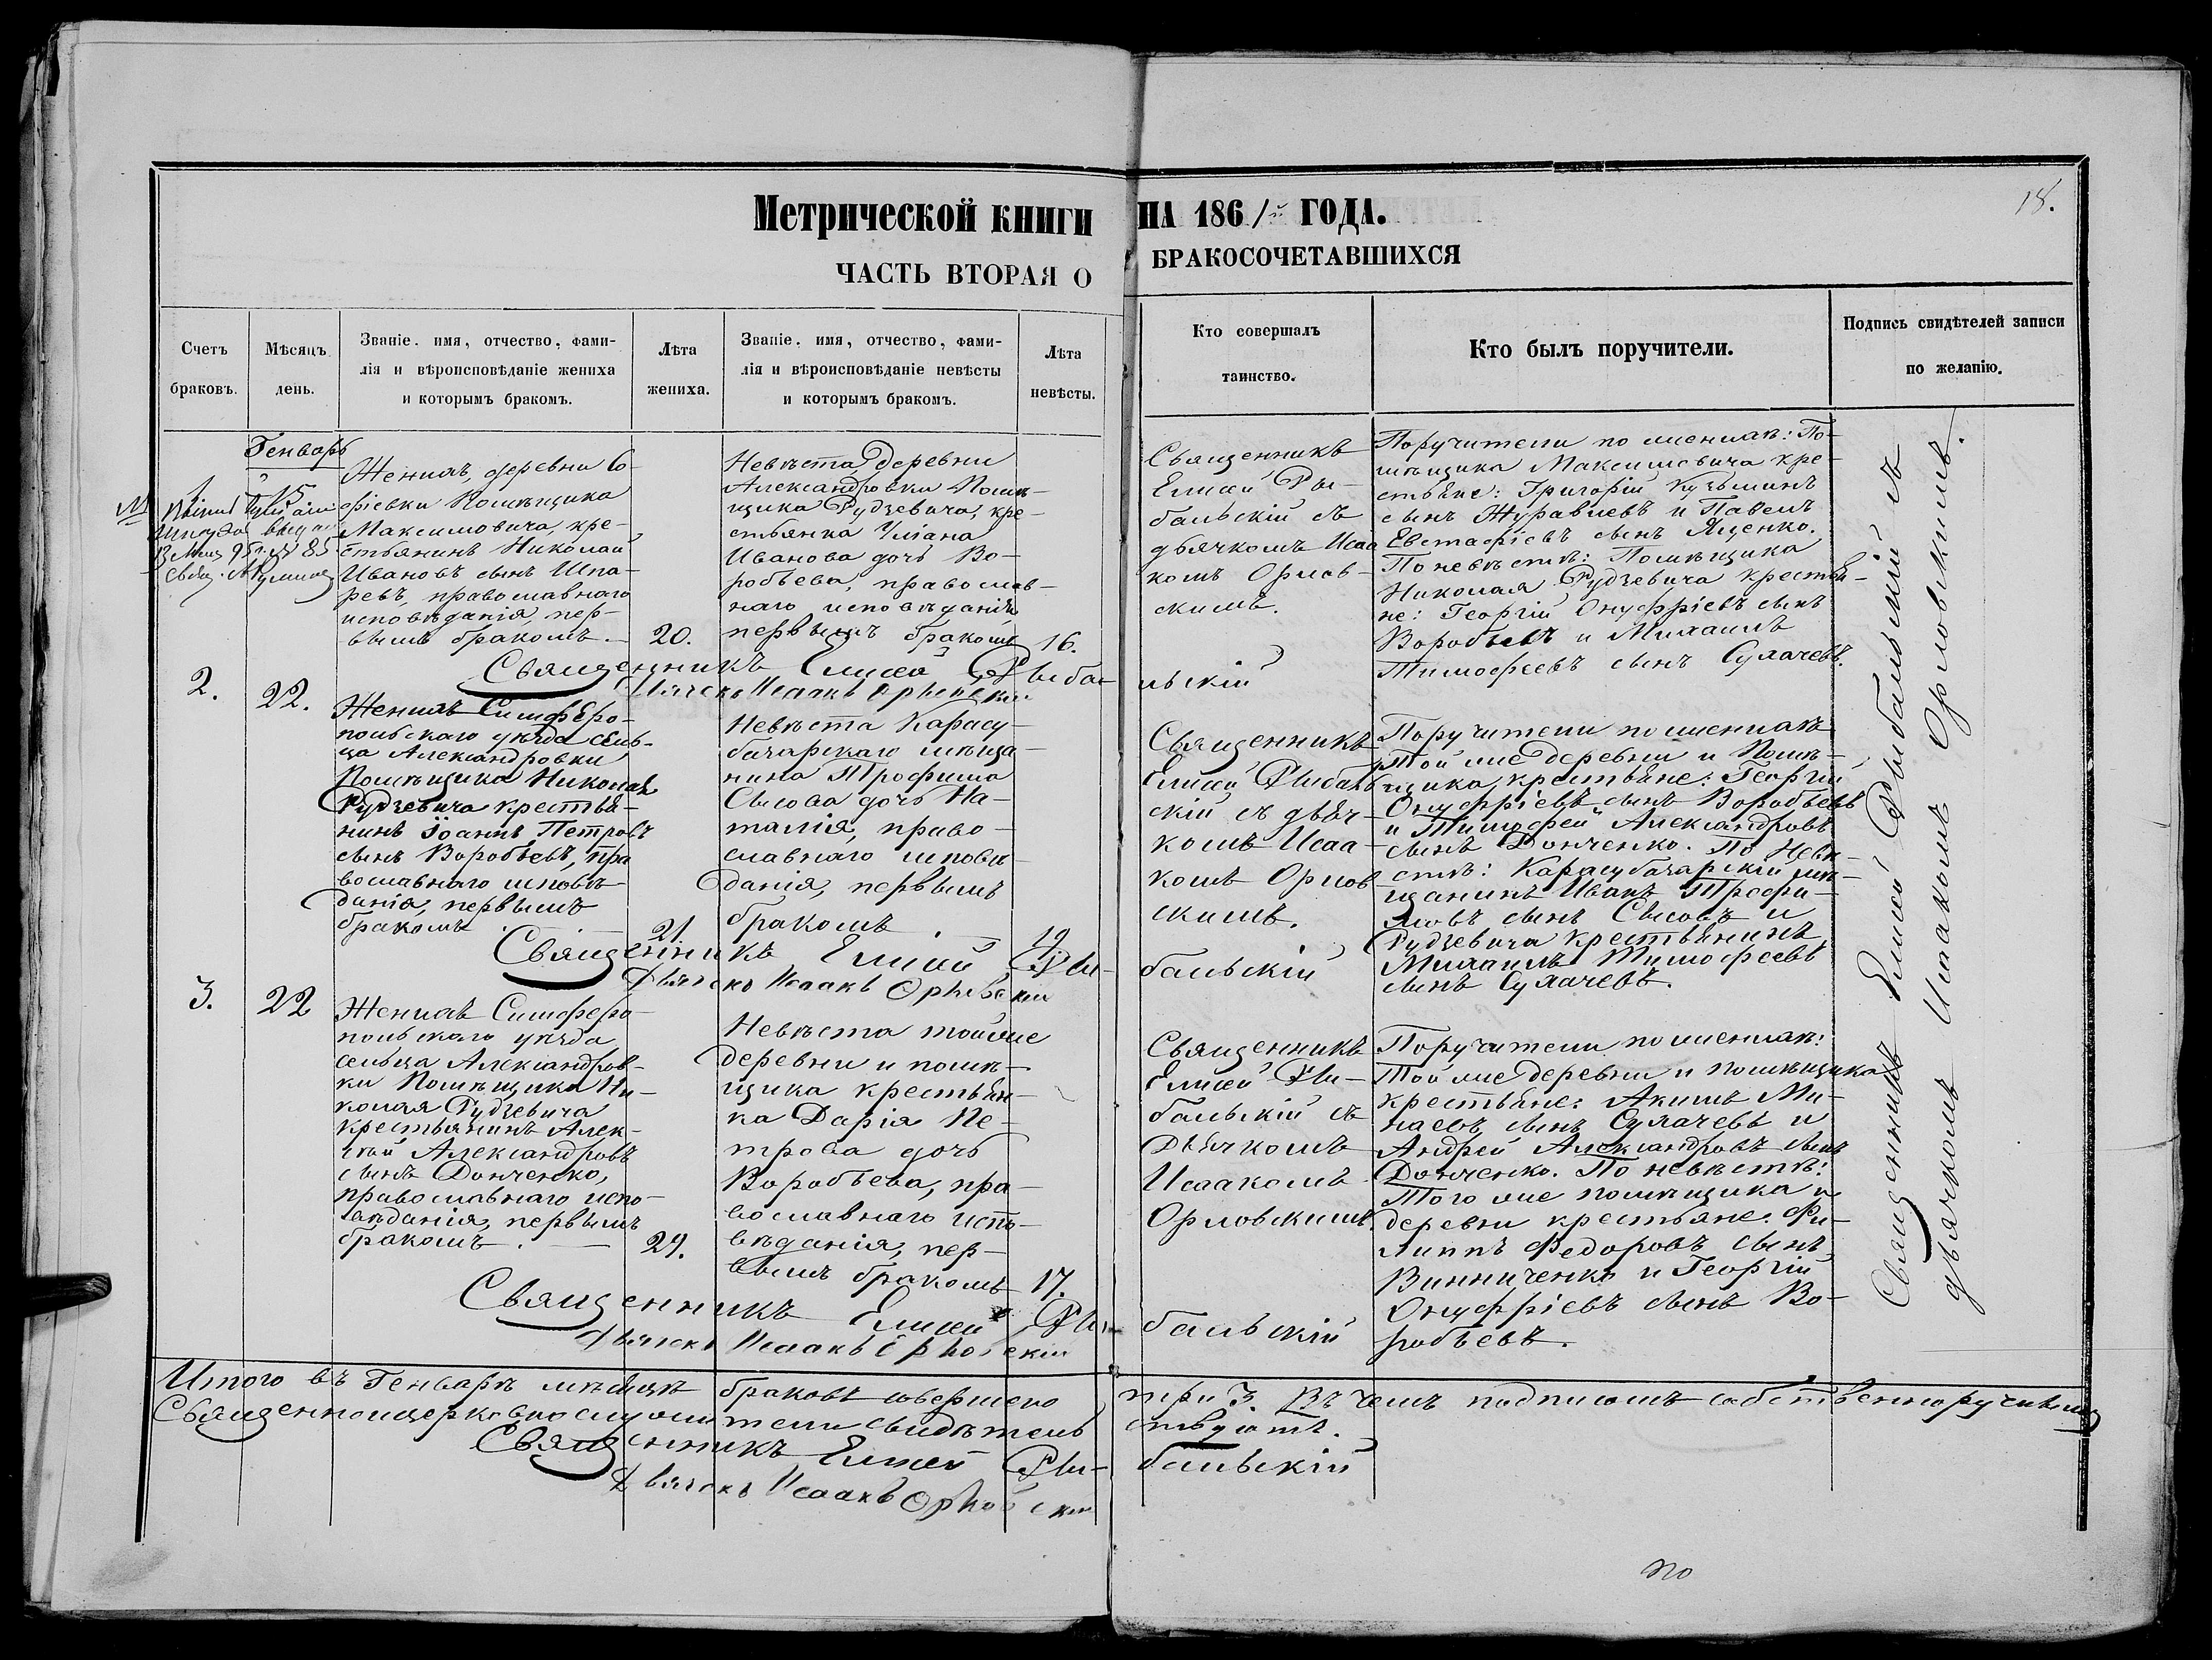 18.
Метрической книги на 1861й года.
ЧАСТЬ ВТОРАЯ О БРАКОСОЧЕТАВШИХСЯ
Счетъ
браковъ.
Мѣсяцъ
день.
Званіе, имя, отчество, фами-
лія и вѣроисповѣданіе жениха
и которымъ бракомъ.
Лѣта
жениха.
Званіе, имя, отчество, фами-
лія и вѣроисповѣданіе невѣсты
и которымъ бракомъ.
Лѣта
невѣсты.
Кто совершалъ
таинство.
Кто былъ поручители.
Подпись свидѣтелей записи
по желанію.
Генварь
1
15
Женихъ, деревни Со-
фіевки Помѣщика
Максимовича, кре-
стьянинъ Николай
Ивановъ сынъ Шпа-
ревъ, православнаго
исповѣданія, пер-
вымъ бракомъ.
20.
Невѣста, деревни
Александровки Помѣ-
щика Рудзевича, кре-
стьянка Уліана
Иванова дочь Во-
робьева, православ-
наго исповѣданія,
первымъ бракомъ
16.
Священникъ
Елисей Ры-
бальскій съ
дьячкомъ Исаа
комъ Орлов-
скимъ.
Поручители по женихѣ: По-
мѣщика Максимовича кре-
стьяне: Григорій Кузьминъ
сынъ Журавлевъ и Павелъ
Евстафіевъ сынъ Яценко.
По невѣстѣ: Помѣщика
Николая Рудзевича крестья-
не: Георгій Онуфріевъ сынъ
Воробьевъ и Михаилъ
Тимофеевъ сынъ Сухачевъ.
Священникъ Елисей Рыбальскій
Дьячекъ Исаакъ Орловскій
2.
22.
Женихъ Симферо-
польскаго уѣзда сель-
ца Александровки
Помѣщика Николая
Рудзевича крестья-
нинъ Іоаннъ Петровъ
сынъ Воробьевъ, пра
вославнаго исповѣ-
данія, первымъ
бракомъ
21.
Невѣста Карасу-
базарскаго мѣща-
нина Трофима
Сысова дочь На-
талія, право-
славнаго исповѣ-
данія, первымъ
бракомъ.
19.
Священникъ
Елисей Рыбаль
скій съ дьяч-
комъ Исаа-
комъ Орлов-
скимъ.
Поручители по женихѣ
Той же деревни и Помѣ-
щика, крестьяне: Георгій
Онуфріевъ сынъ Воробьевъ
и Тимофей Александровъ
сынъ Донченко. По Невѣ-
стѣ: Карасубазарскій мѣ-
щанинъ Иванъ Трофи-
мовъ сынъ Сысовъ и
Рудзевича крестьянинъ
Михаилъ Тимофеевъ
сынъ Сухачевъ.
Священникъ Елисей Рыбальскій
Дьячекъ Исаакъ Орловскій
3.
22
Женихъ Симферо-
польскаго уѣзда
сельца Александров-
ки Помѣщика Ни-
колая Рудзевича
крестьянинъ Алек-
сѣй Александровъ
сынъ Донченко,
православнаго испо-
вѣданія, первымъ
бракомъ.
Невѣста той же
деревни и помѣ-
щика крестьян-
ка Дарія Пе-
трова дочь
Воробьева, пра-
вославнаго испо-
вѣданія, пер-
вымъ бракомъ
17.
Священникъ
Елисей Ры-
бальскій съ
Дьячкомъ
Исаакомъ
Орловскимъ.
Поручители по женихѣ:
Той же деревни и помѣщика
крестьяне: Акимъ Ми-
наевъ сынъ Сухачевъ и
Андрей Александровъ сынъ
Донченко. По невѣстѣ:
Того же помѣщика и
деревни крестьяне: Фи-
липпъ Федоровъ сынъ
Винниченко и Георгій
Онуфріевъ сынъ Во-
робьевъ.
Священникъ Елисей Рыбальскій
Дьячекъ Исаакъ Орловскій
Священникъ Елисей Рыбальскій съ
дьячкомъ Исаакомъ Орловскимъ.
Итого въ Генварѣ мѣсяцѣ браковъ совершено три 3. Въ чемъ подписомъ собственноручнымъ
Священноцерковнослужители свидѣтельствуютъ.
Священникъ Елисей Рыбальскій
Дьячекъ Исаакъ Орловскій